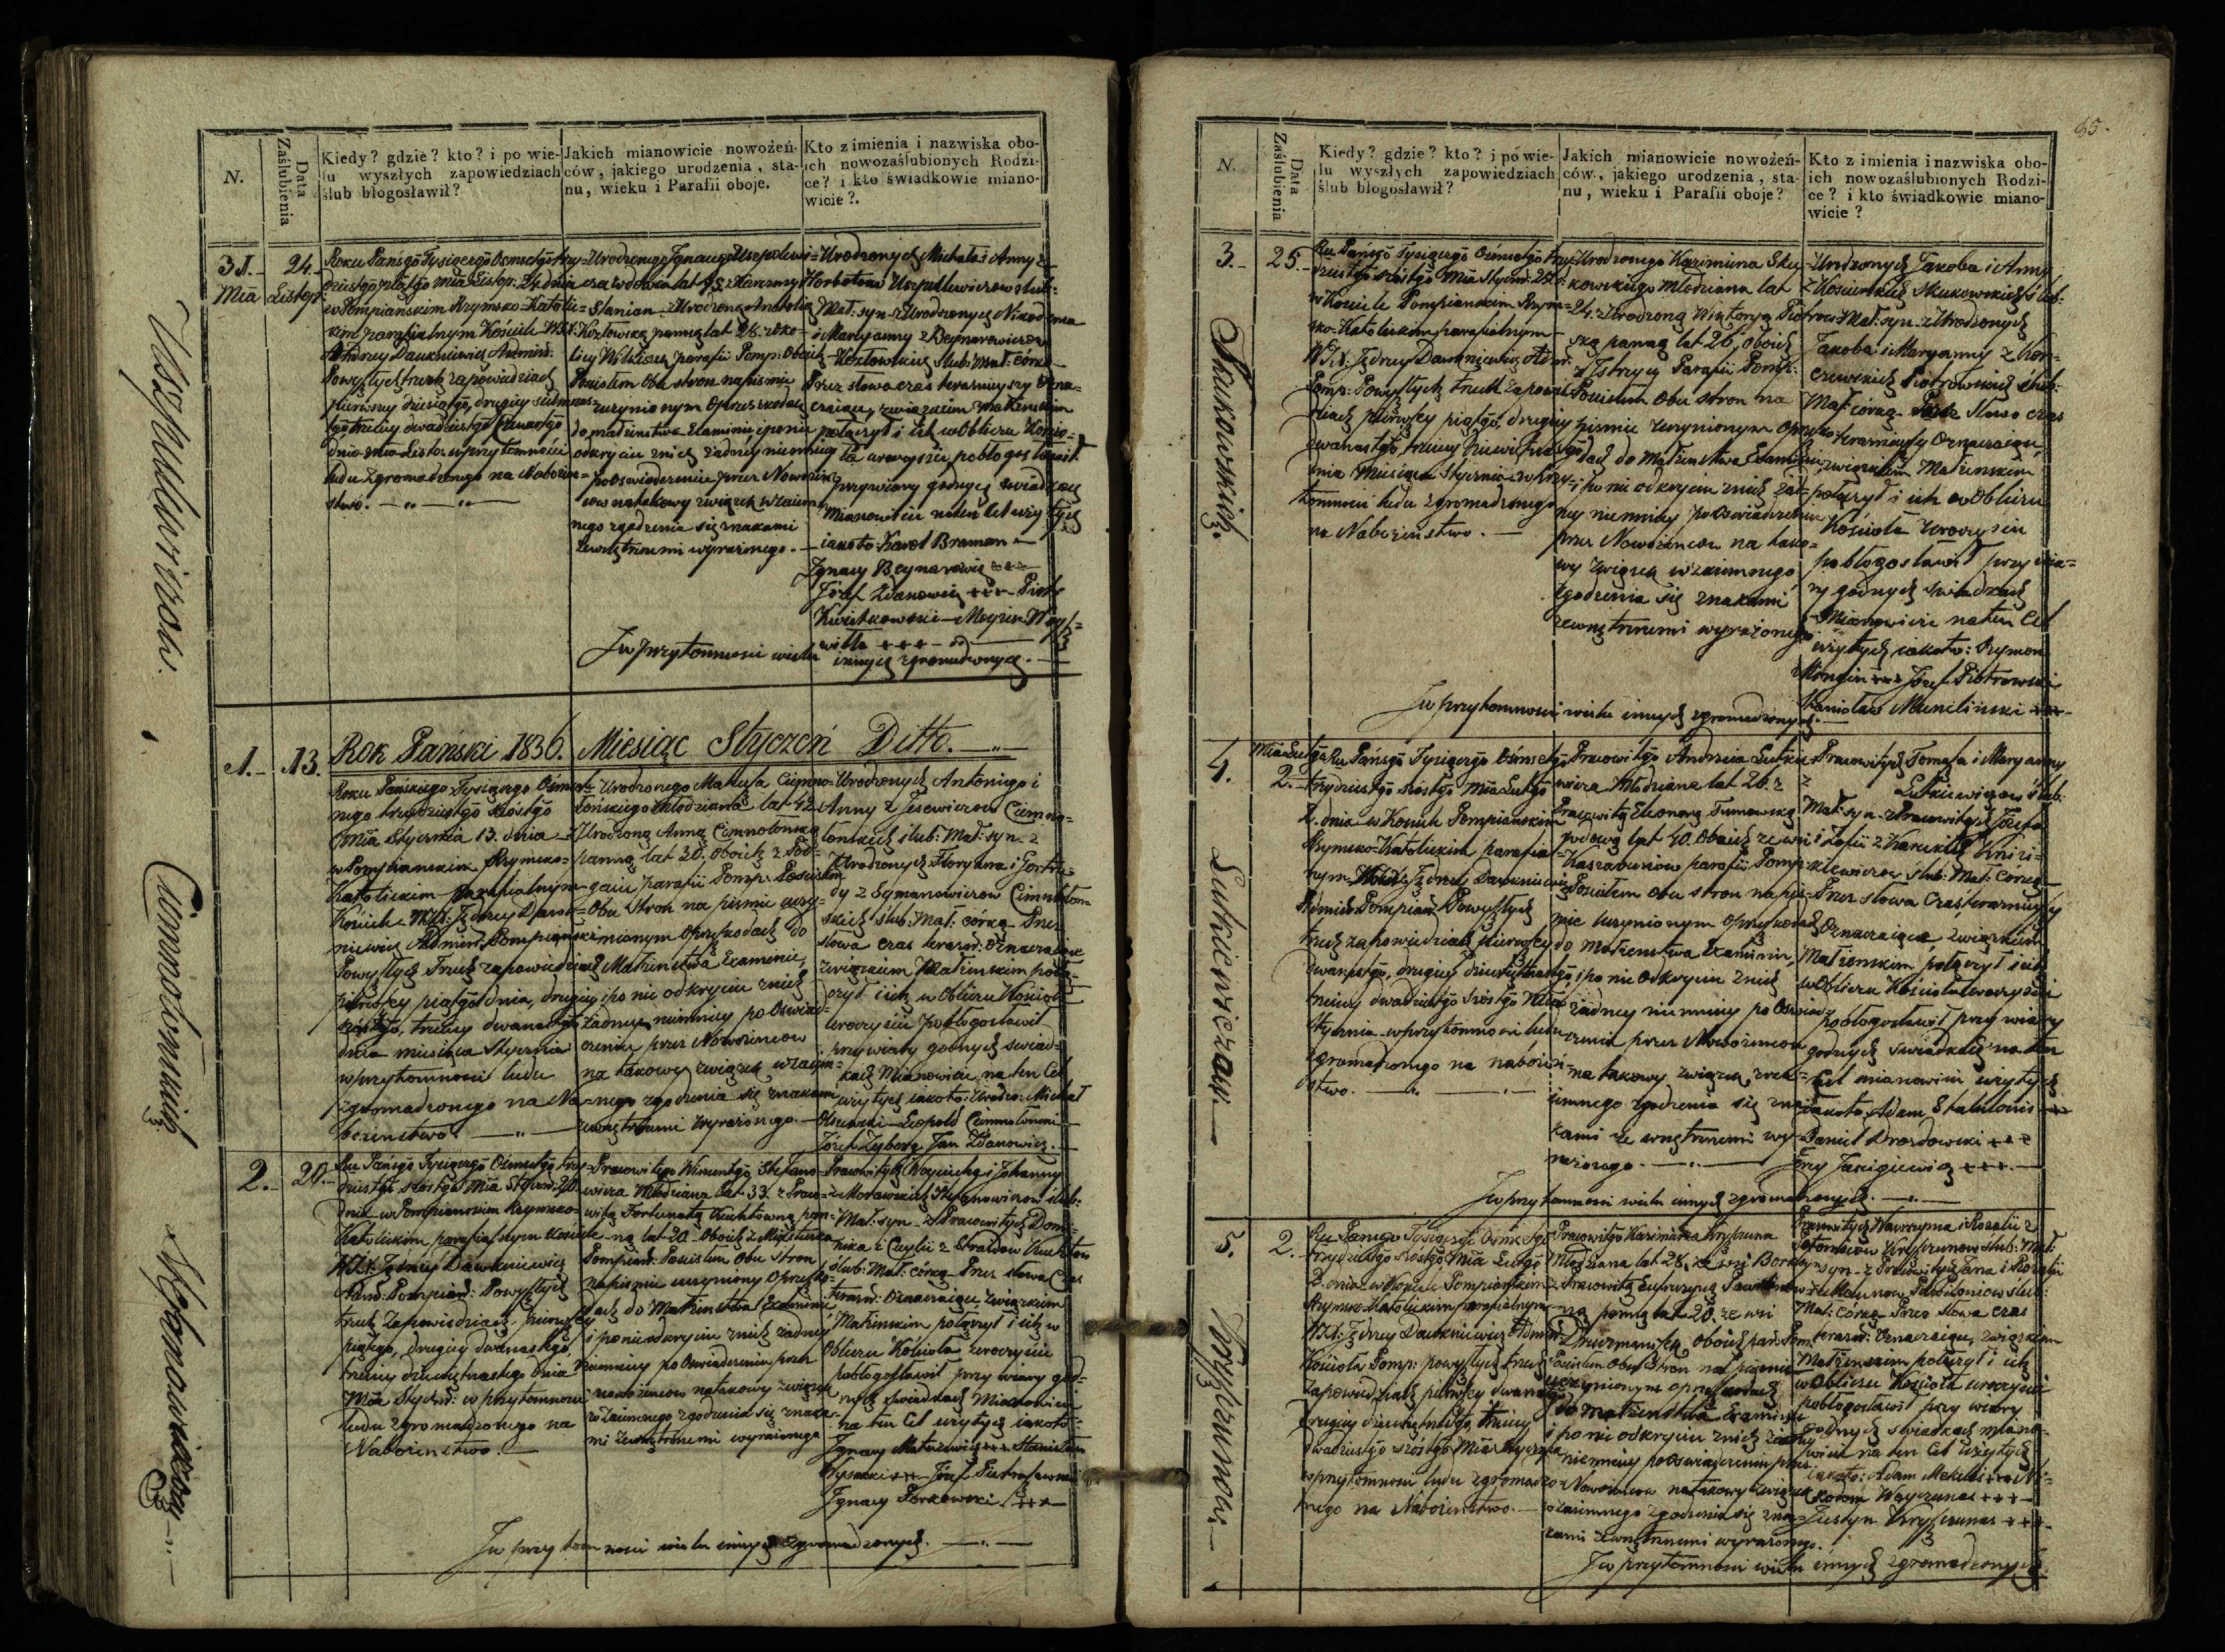 N.
Data Zaślubienia
Kiedy? gdzie? kto? i po wie-
lu wyszłych zapowiedziach
ślub błogosławił?
Jakich mianowicie nowożeń-
ców, jakiego urodzenia, sta-
nu, wieku i Parafii oboje.
Kto z imienia i nazwiska obo-
ich nowozaślubionych Rodzi-
ce? i kto świadkowie miano-
wicie?
31.
Mia
24.
Listop:
Roku Pańsgo Tysiącgo Osmsetgo trzy-
dziestgo piątgo mia Listop: 24. dnia
w Pompiańskim Rzymsko-Katolic-
kim parafialnym Kościele W:JX:
Jędrzey Daukniewicz Administ:
Powyszłych trzech zapowiedziach
pierwszey dziesiątgo, drugiey siedmnas-
tgo trzeciey dwudziestgo czwartgo
dnia mia Listo: w przytomności
ludu zgromadzonego na Nabożeń-
stwo.
Kozłowską panną lat 26.
parafii Pomp: Oboich
Posistem Obu stron na piśmie
uczynionym o przeszkodach
do małżeństwa Examinie y po nie
odkryciu znich żadney niemniey
pooświadczeniu przez Nowożeń-
ców na takowy związek wzaiem-
nego zgodzenia się znakami
zewnętrznemi wyrażonego.
Urodzonych Michała i Anny z
Mał: syn z Urodzonych Nikodema
i Maryanny z Beynarowiczow
Kozłowskich Ślub: Mał: Córka
Przez słowa czas teraznieyszy Ozna-
czaiące, związkiem małżeńskim
połączył i ich w Obliczu Kościo-
ła uroczyście pobłogosławił
przy wiary godnych świadkach
Mianowicie na ten Cel użytych
iako to: Karol Braman
Ignacy Beynarowicz +++
Józef Zdanowicz +++ Piotr
Kwiatkowski
+++
I w przytomności wielu innych zgromadzonych.
1.
13.
Rok Pański 1836. Miesiąc Styczeń Ditto.
Roku Pańskiego Tysiącgo Ośmset-
nego trzydziestgo szóstgo
mia Stycznia 13. dnia
w Pompiańskim Rzymsko-
Katolickim Parafialnym
Kościele W:JX: Jędrzey Dauk-
niewicz Admin: Pompiański
Powyszłych Trzech zapowiedziach
pierwszey piątgo dnia, drugiey
szóstgo, trzeciey dwanastgo
dnia miesiąca Stycznia
w przytomności ludu
zgromadzonego na Na-
bożeństwo.
Urodzonego Mateusza Ciemno-
łońskiego Młodziana lat 42.
z Urodzoną Anną Ciemnołońską
panną lat 30. oboich z Pod-
gaiu parafii Pomp: Posistem
Obu Stron na piśmie uczy-
nionym o przeszkodach do
Małżeństwa Examinie,
i po nie odkryciu znich
żadney niemniey po Oświad-
czeniu przez Nowożeńcow
na takowy związek wzaiem-
nego zgodzenia się znakami
zewnętrznemi wyrażonego.
Urodzonych Antoniego i
Anny z Jesewiczow Ciemno-
łonskich ślub: Mał: syn z
Urodzonych Floryana i Gertru-
dy z Szymanowiczow Ciemnołon-
skich ślub: Mał: córką Przez
słowa czas teraźn: Oznaczaiące
związkiem Małżeńskim połą-
czył i ich w Obliczu Kościoła
uroczyście pobłogosławił
przy wiary godnych świad-
kach Mianowicie na ten Cel
użytych iako to: Urodz: Michał
Olszewski Leopold Ciemnołoński
Józef Zyberg Jan Zdanowicz.
2.
20.
Ru Pańsgo Tysiącgo Ośmsetgo trzy-
dziestgo szóstgo Mia Styczn: 20.
dnia w Pompianskim Rzymsko-
Katolickim parafialnym Kościele
W:JX: Jędrzey Daukniewicz
Adm: Pompiań: Powyszłych
trzech Zapowiedziach pierwszey
piątego, drugiey dwanastgo,
trzeciey dziewiętnastego dnia
Mia Styczn: w przytomności
ludu zgromadzonego na
Nabożeństwo.
Pracowitego Wincentego Stefano-
wicza Młodziana lat 33. z Praco-
witą Fortunatą Kuchtowną pan-
ną lat 20. Oboich z
Pompiań: Posistem Obu stron
na piśmie uczyniony o przeszko-
dach do Małżeństwa Examinie
i po nieodkryciu znich żadney
niemniey po Oświadczeniu przez
nowożeńcow na takowy związek
wzaiemnego zgodzenia się znaka-
mi zewnętrznemi wyrażonego
Pracowitych Woyciecha i Johanny
z Morawskich Stefanowiczow ślub:
Mał: syn z Pracowitych Domi-
nika i Cecylii z Kuchtow
ślub: Mał: córką Przez słowa Czas
teraźn: Oznaczaiące związkiem
Małżeńskim połączył i ich w
Obliczu Kościoła uroczyście
pobłogosławił przy wiary god-
nych świadkach Mianowicie
na ten Cel użytych iako to:
Ignacy Matuzewicz +++ Stanisław
Wysocki +++ Józef
Ignacy Borkowski +++
I w przytomności wielu innych zgromadzonych.
Uszpulewiczow.
Ciemnołonskich
Stefanowiczow
85.
N.
Data Zaślubienia
Kiedy? gdzie? kto? i po wie-
lu wyszłych zapowiedziach
ślub błogosławił?
Jakich mianowicie nowożeń-
ców, jakiego urodzenia, sta-
nu, wieku i Parafii oboje?
Kto z imienia i nazwiska obo-
ich nowozaślubionych Rodzi-
ce? i kto świadkowie miano-
wicie?
3.
25.
Skukowskich.
Ru Pańsgo Tysiącgo Ośmsetgo trzy-
dziestgo szóstgo Mia Styczn: 25.
w Kościele Pompianskim Rzym-
sko-Katolickim parafialnym
W:JX: Jędrzey Daukniewicz Adm:
Pomp: Powyszłych trzech Zapowie-
dziach pierwszey piątgo, drugiey
dwanastgo, trzeciey dziewiętnastgo
dnia Miesiąca Stycznia w przy-
tomności ludu zgromadzonego
na Nabożeństwo.
Urodzonego Kazimierza Sku-
kowskiego młodziana lat
24. z Urodzoną Wiktoryą Piotrow-
ską panną lat 26, oboich
z Istrycy Parafii Pomp:
Posistem Obu stron na
piśmie uczynionym o przeszko-
dach do Małżeństwa Examinie
i po nie odkryciu znich żad-
ney niemniey po Oświadczeniu
przez Nowożeńcow na tako-
wy związek wzaiemnego
zgodzenia się znakami
zewnętrznemi wyrażonego
Urodzonych Jakoba i Anny
z Kosinskich Skukowskich ślub:
Mał: syn z Urodzonych
Jakoba i Maryanny z Kor-
czewskich Piotrowskich ślub:
Mał: córką Przez Słowo czas
teraznieyszy Oznaczaiące
związkiem Małżeńskim
połączył i ich w Obliczu
Kościoła uroczyście
pobłogosławił przy wia-
ry godnych świadkach
Mianowicie na ten Cel
użytych iako to: Szymon
+++ Józef Piotrowski
Stanisław +++
I w przytomności wielu innych zgromadzonych.
4.
Mia Lutgo
2.
Lutkiewiczow
Ru Pańsgo Tysiącgo Ośmsetgo
trzydziestgo szóstgo Mia Lutgo
2. dnia w Kościele Pompiańskim
Rzymsko-Katolickim parafial-
nym W:JX: Jędrzey Daukniewicz
Admin: Pompiań: Powyszłych
trzech zapowiedziach pierwszey
dwanastgo, drugiey dziewiętnastgo
trzeciey dwudziestgo szóstgo Mia
Stycznia w przytomności ludu
zgromadzonego na nabożeń-
stwo.
Pracowitgo Andrzeia Lutkie-
wicza Młodziana lat 20. z
Pracowitą Eleonorą Tumowską
wdową lat 40. Oboich ze wsi
parafii Pomp:
Posistem Obu stron na piś-
mie uczynionym o przeszkodach
do małżeństwa Examinie,
i po nie odkryciu znich
żadney niemniey po Oświad-
czeniu przez Nowożeńcow
na takowy związek wza-
iemnego zgodzenia się zna-
kami zewnętrznemi wy-
rażonego.
Pracowitych Tomasza i Maryanny
z Lutkiewiczow ślub:
Mał: syn z Pracowitych Józefa
i Zofii z
ślub: Mał: Córką
Przez słowa Czas teraznieyszy
Oznaczaiące związkiem
Małżeńskim połączył i ich
w Obliczu Kościoła uroczyście
pobłogosławił przy wiary
godnych świadkach na ten
Cel mianowicie użytych
iako to: Adam +++
Daniel Drozdowski +++
Jerzy +++
I w przytomności wielu innych zgromadzonych.
5.
2.
Krzyżewnow
Ru Pańsgo Tysiącgo Ośmsetgo
trzydziestgo szóstgo Mia Lutgo
2. dnia w Kościele Pompiańskim
Rzymsko-Katolickim parafialnym
W:JX: Jędrzey Daukniewicz Admin:
Kościoła Pomp: powyszłych trzech
Zapowiedziach pierwszey dwanastgo
drugiey dziewiętnastgo, trzeciey
dwudziestgo szóstgo Mia Stycznia
w przytomności ludu zgromadzo-
nego na Nabożeństwo.
Pracowitgo Kazimierza
Młodziana lat 28. ze wsi
z Pracowitą
ną panną lat 20. ze wsi
oboich par: Pom:
Posistem Obu Stron na piśmie
uczynionym o przeszkodach
do małżeństwa Examinie
i po nie odkryciu znich żadney
niemniey po oświadczeniu przez
Nowożeńcow na takowy związek
wzaiemnego zgodzenia się zna-
kami zewnętrznemi wyrażonego.
Pracowitych Wawrzyna i Rozalii z
ślub: Mał:
syn z Pracowitych Jana i Rozalii
ślub:
Mał: Córką Przez słowa czas
teraźn: Oznaczaiące, związkiem
Małżeńskim połączył i ich
w Obliczu Kościoła uroczyście
pobłogosławił przy wiary
godnych świadkach miano-
wicie na ten Cel użytych
iako to: Adam +++ Ni-
kodem +++
Justyn +++
I w przytomności wielu innych zgromadzonych